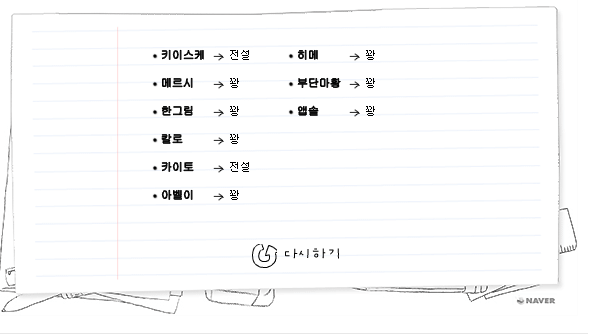 • 키이스케 → 전설
• 메르시 → 꽝
• 한그림 → 꽝
• 칼로 → 꽝
• 카이토 → 전설
• 아벨이 → 꽝
• 히메 → 꽝
• 부단마황 → 꽝
• 앱솔 → 꽝
다시하기
NAVER